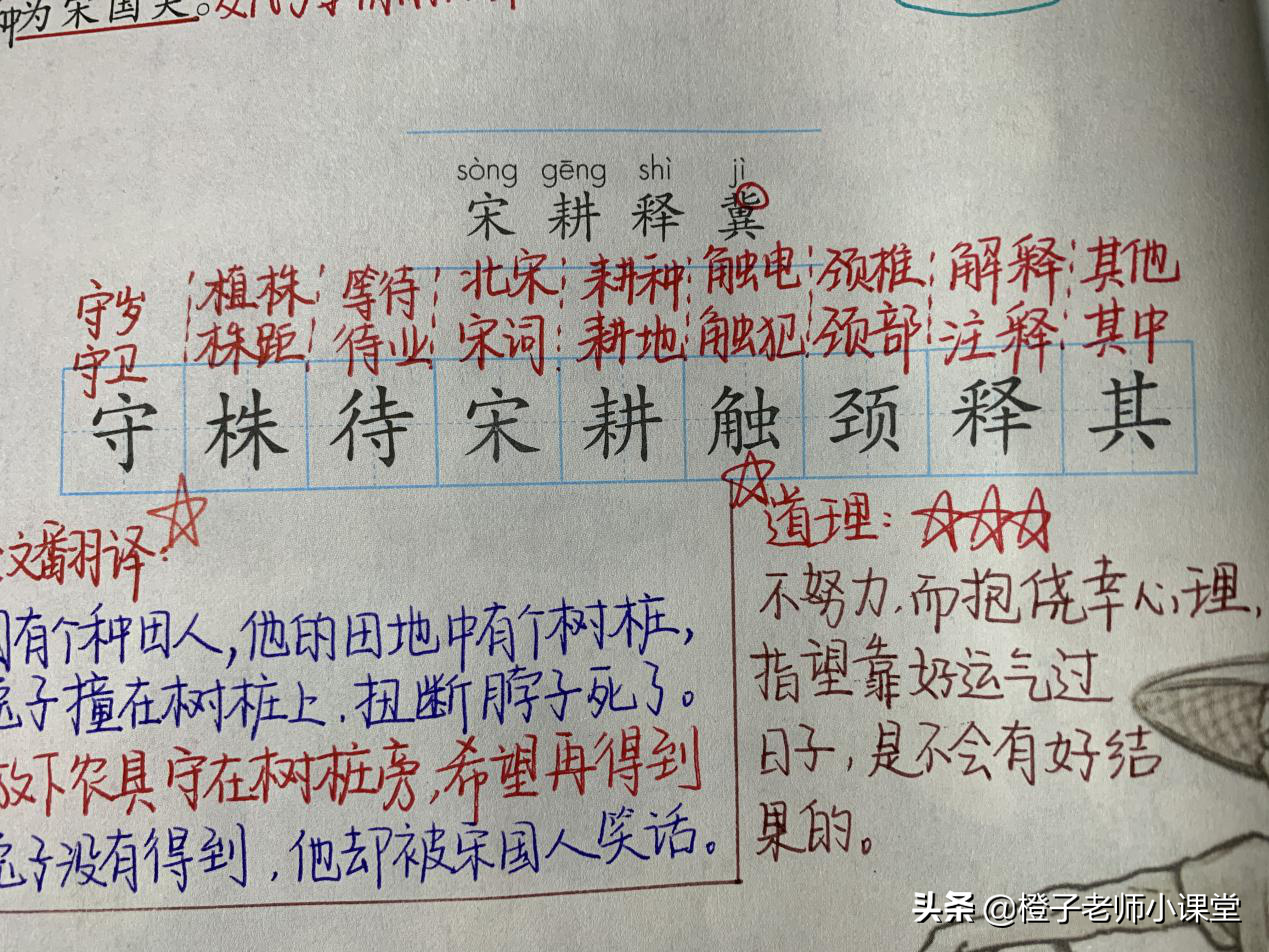 种为宋国笑。
sòng gēng shì jì
宋 耕 释 冀
守岁 植株 等待 北宋 耕种 触电 颈椎 解释 其他
守卫 株距 待业 宋词 耕地 触犯 颈部 注释 其中
守 株 待 宋 耕 触 颈 释 其
文翻译:
有个种田人,他的田地中有个树桩,
兔子撞在树桩上,扭断脖子死了。
放下农具守在树桩旁,希望再得到
兔子没有得到,他却被宋国人笑话。
道理:
不努力,而抱侥幸心理,
指望靠好运气过
日子,是不会有好结
果的。
头条 @橙子老师小课堂